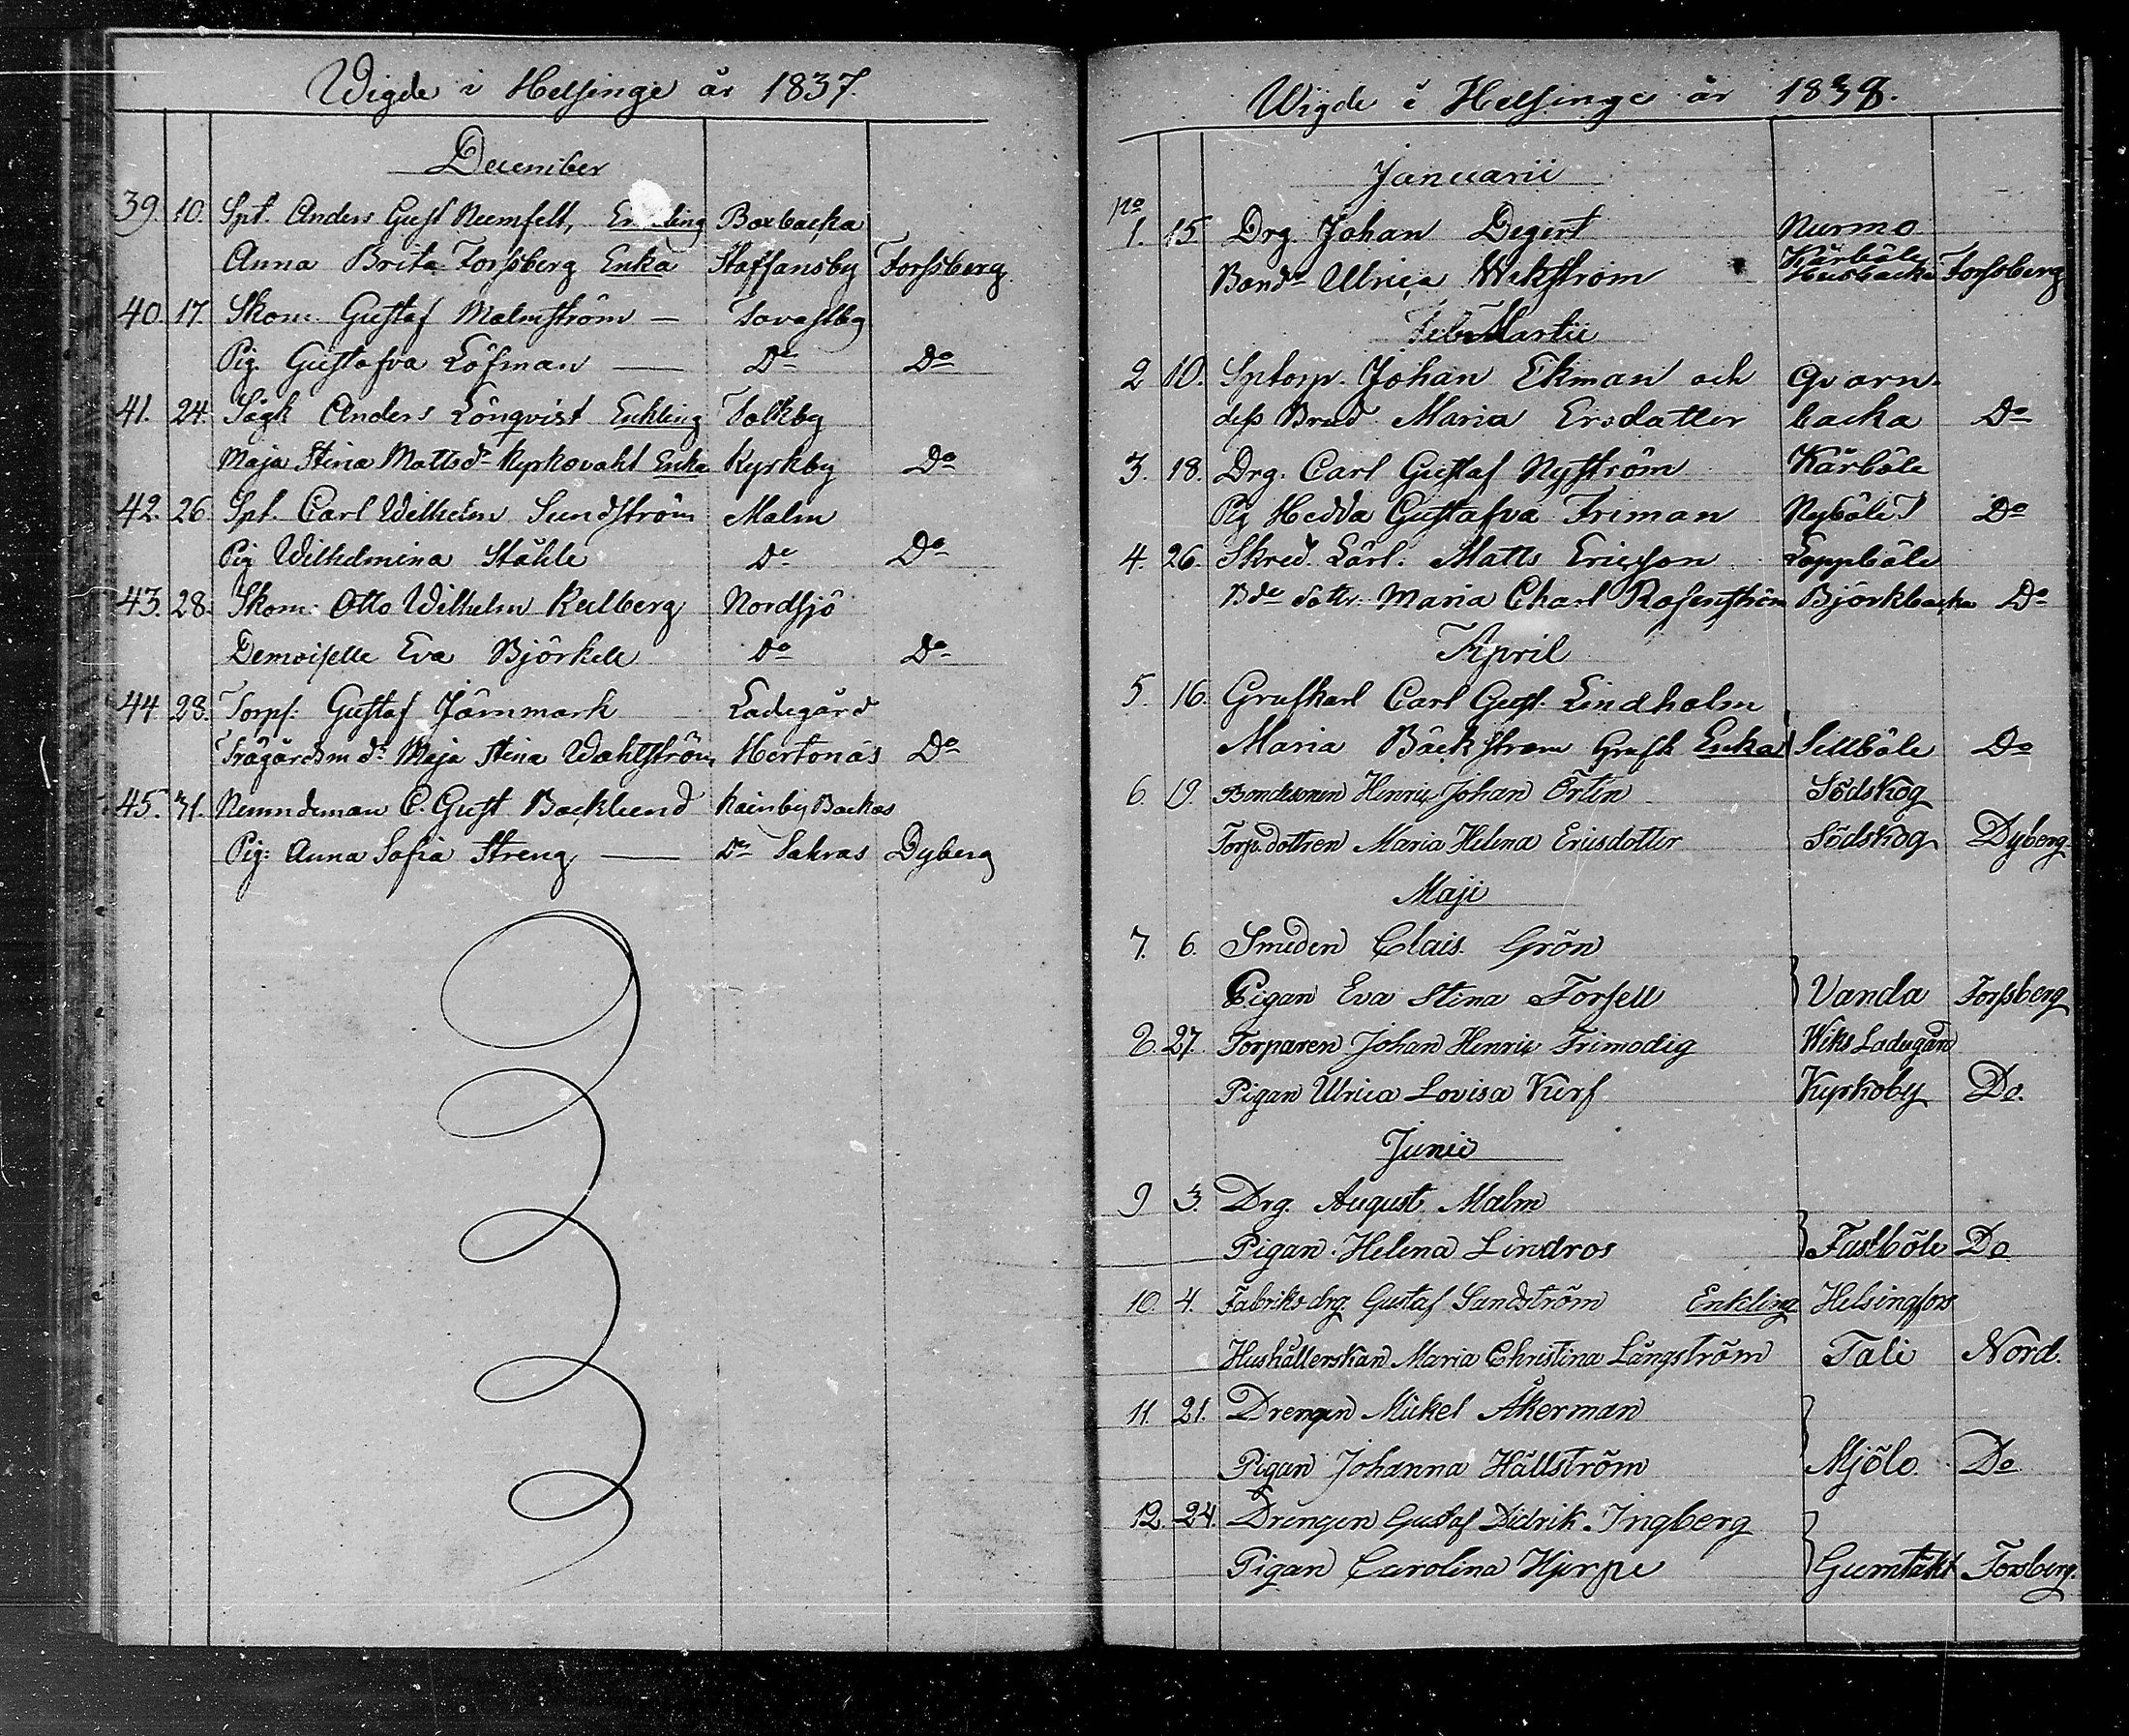 Wigde i Helsinge år 1837.
December
39. 10. Spt. Anders Gust Neemfelt, Boxbacka
Anna Brita Forssberg Enka Staffansby Forssberg
40. 17. Skom. Gustaf Malmström — Tavastby
Pig. Gustafva Löfman — Do Do
41. 24. Anders Lönqvist Enkling Tolkby
Maja Stina Mattsdr Enka Kyrkby Do
42. 26. Spt. Carl Wilhelm Sundström Malm
Pig Wilhelmina Ståhle Do Do
43. 28. Skom. Otto Wilhelm Kulberg Nordsjö
Demoiselle Eva Björkell Do Do
44. 28. Torps. Gustaf Järnmark Ladugård
Trägårdsm dr Maja Stina Wahlström Hertonäs Do
45. 31. Nemndeman C. Gust Backlund Kainby Backas
Pig: Anna Sofia Streng — Do Sakras Dyberg
Wigde i Helsinge år 1838.
Januarii
No
1. 15. Drg. Johan Degert Nurmo
Bondr Ulrica Wekström Kårböle Forssberg
Martii
2 10. Sptorp. Johan Ekman och Qvarn-
dess Brud Maria Ersdatter backa Do
3. 18. Drg. Carl Gustaf Nyström Kårböle
Pig Hedda Gustafva Friman Nyböle Do
4. 26. Skred. Lärl. Matts Ericsson Loppböle
Bde dotter Maria Charl Rosenström Björkbacka Do
April
5. 16. Grufkarl Carl Gust. Lindholm
Maria Bäckström Grufk Enka Sillböle Do
6. 19. Bondesonen Henric Johan Örten Södskog
Torp.dottren Maria Helena Ericsdotter Södskog Dyberg
Maji
7. 6. Smeden Clais Grön
Pigan Eva Stina Forsell Vanda Forssberg
8. 27. Torparen Johan Henric Frimodig Wiks Ladugård
Pigan Ulrica Lovisa Kurf Kyrkoby Do.
Junii
9 3. Drg. August Malm
Pigan Helena Lindros Fastböle Do
10. 4. Fabriksdrg. Gustaf Sandström Enkling Helsingfors
Hushållerskan Maria Christina Långström Tali Nord.
11. 21. Drengen Mickel Åkerman
Pigan Johanna Hällström Mjölo Do
12. 24. Drengen Gustaf Didrik Ingberg
Pigan Carolina Hjerpe Gumtäkt Forsberg.